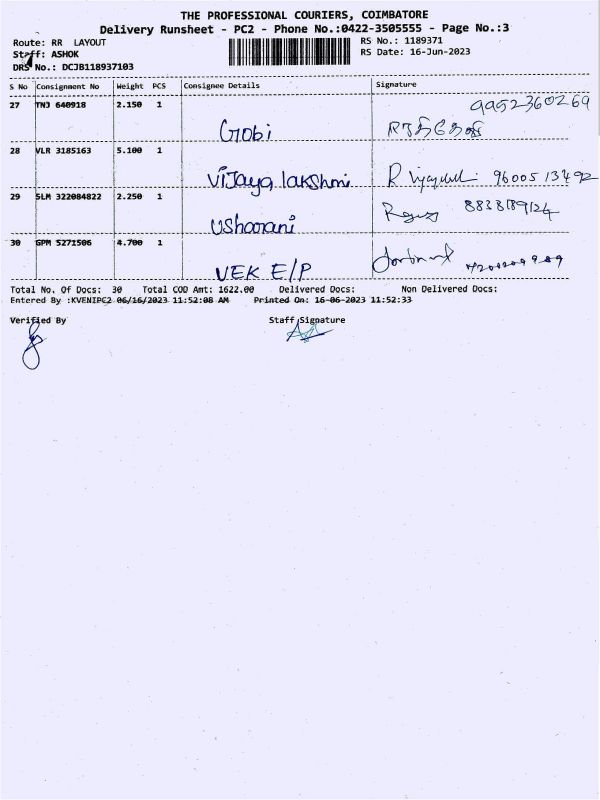 THE PROFESSIONAL COURIERS, COIMBATORE
Delivery Runsheet - PC2 - Phone No.:0422-3505555 - Page No.:3
Route: RR LAYOUT
RS No.: 1189371
Staff: ASHOK
RS Date: 16-Jun-2023
DRS No.: DCJB118937103
S No Consignment No Weight PCS Consignee Details Signature
27 TNJ 640918 2.150 1 9952360269
Gobi
28 VLR 3185163 5.100 1
Vijaya lakshmi R 9600513492
29 SLM 322084822 2.250 1
ushaarani
30 GPM 5271506 4.700 1
VEK E/P
Total No. Of Docs: 30 Total COD Amt: 1622.00 Delivered Docs: Non Delivered Docs:
Entered By :KVENIPC2 06/16/2023 11:52:08 AM Printed On: 16-06-2023 11:52:33
Verified By Staff Signature